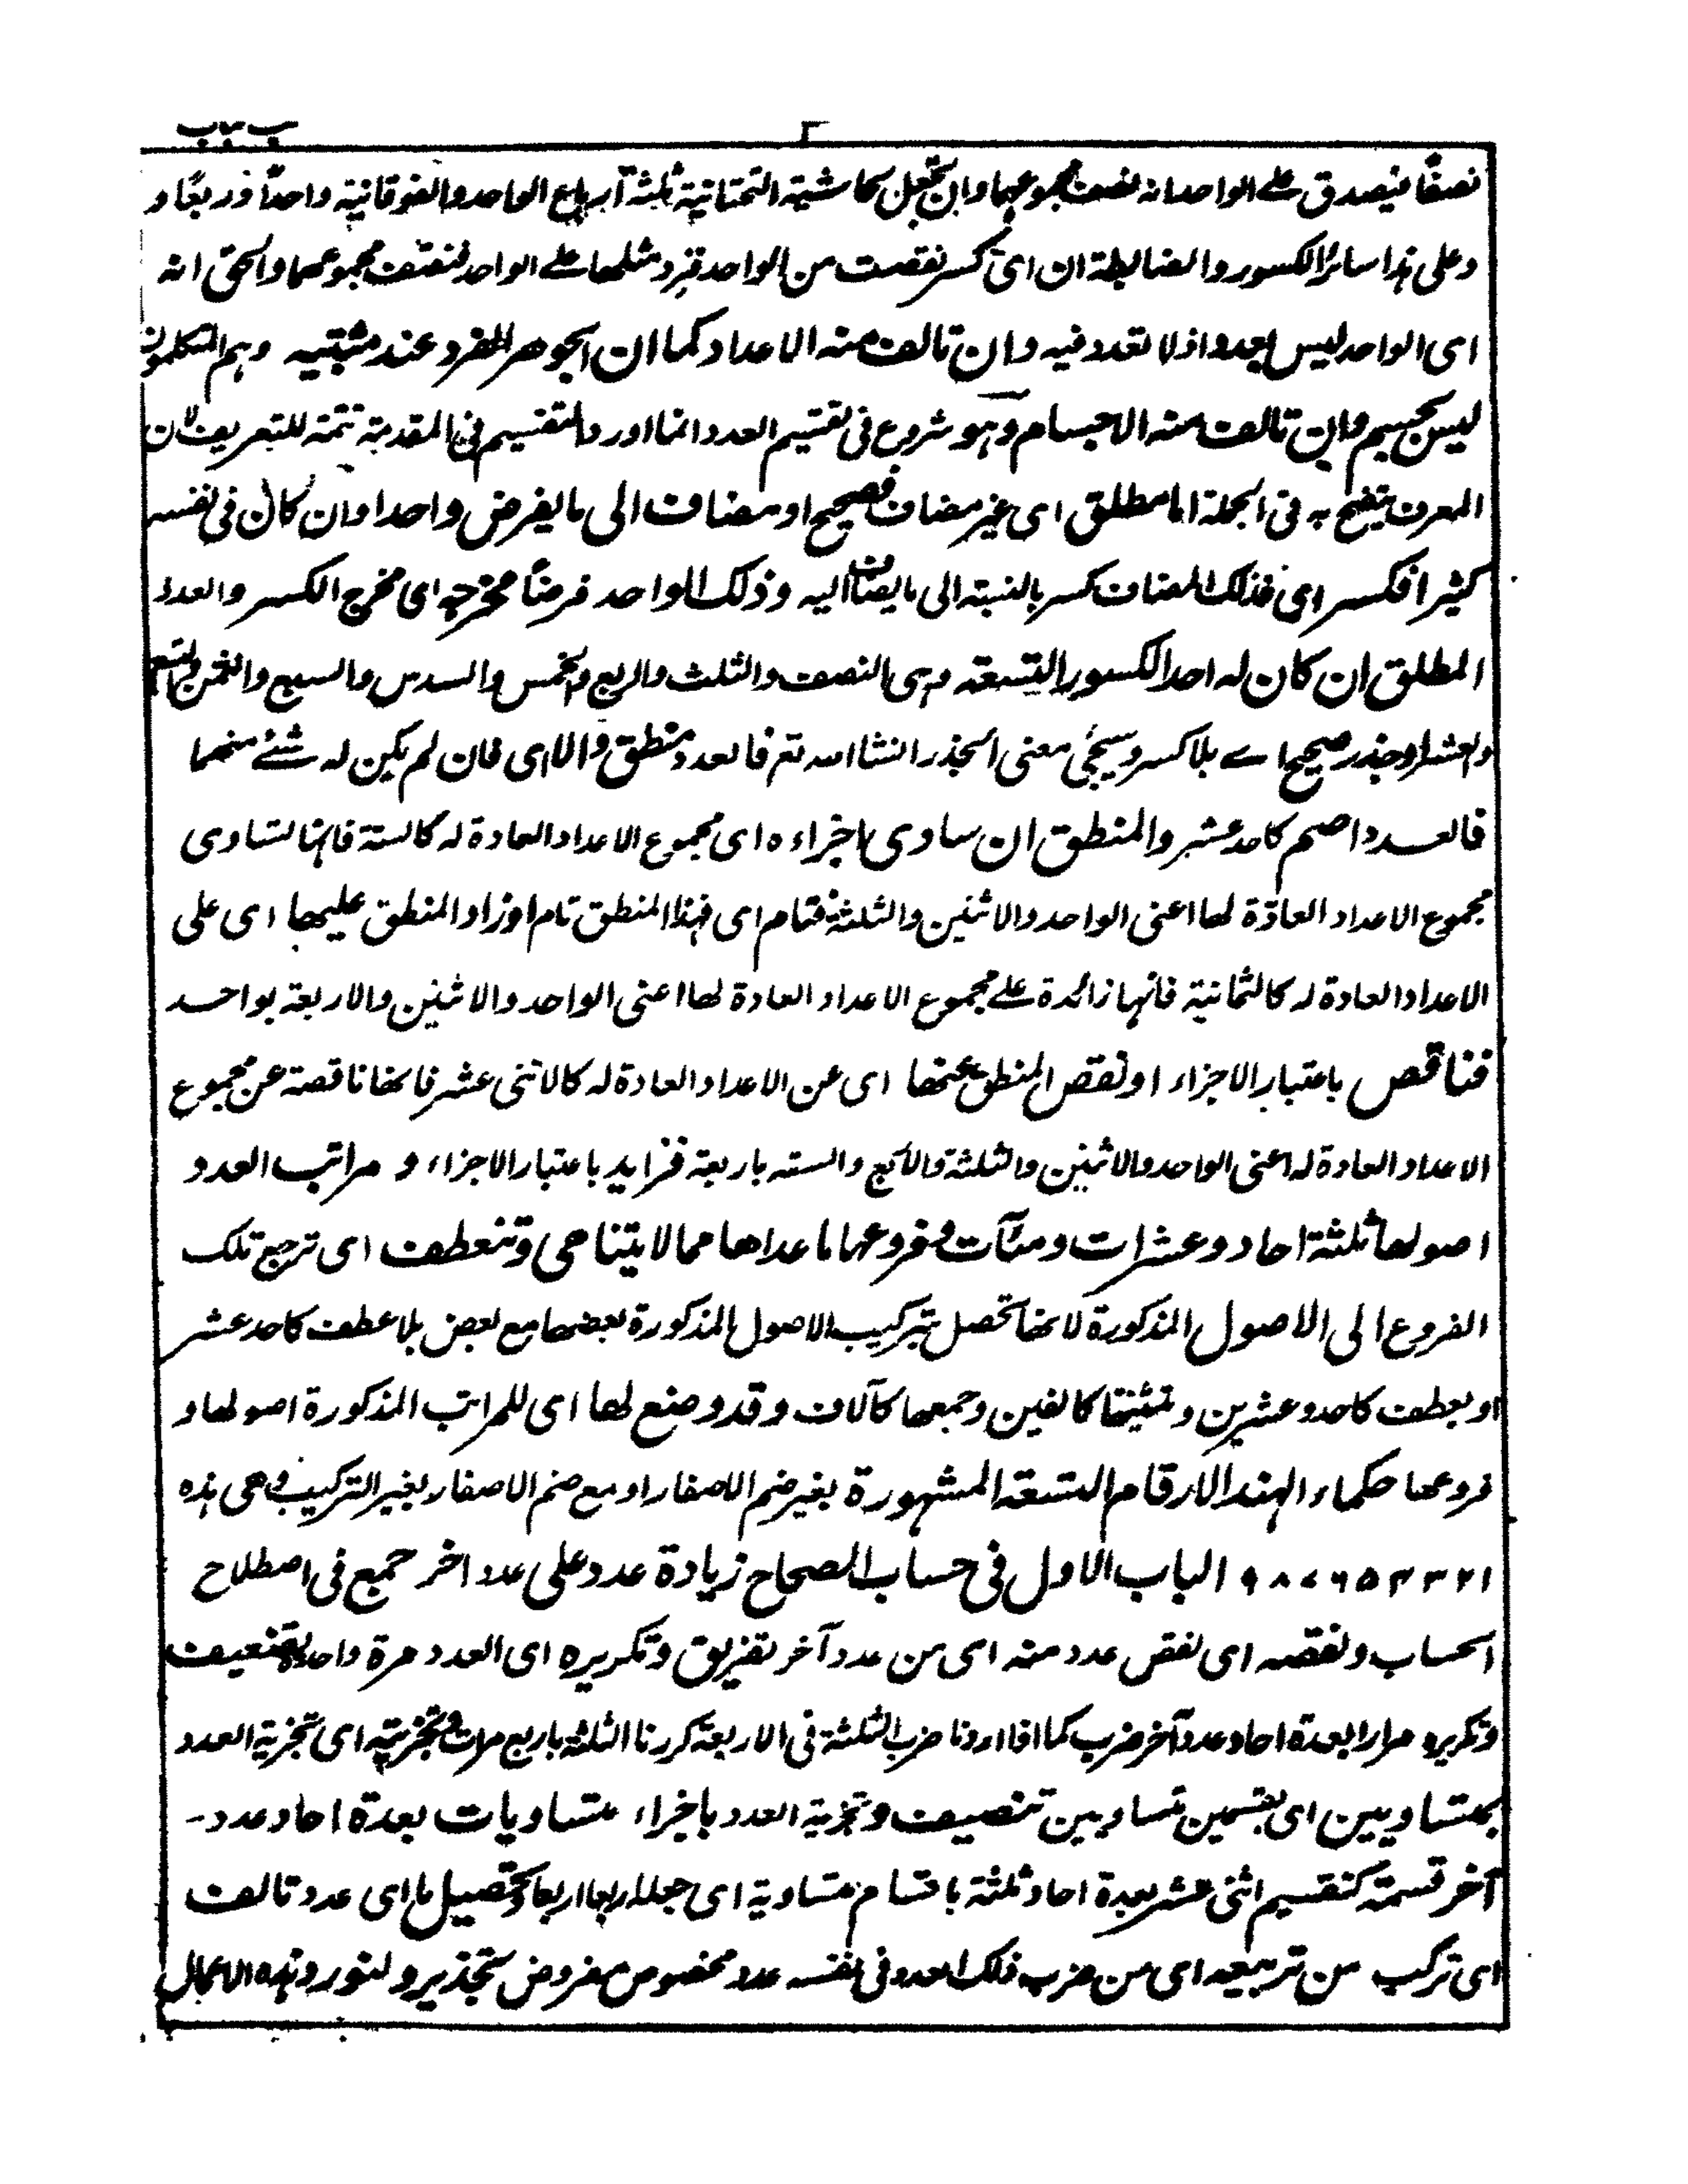 نصفًا فيصدق على الواحد انه نصف مجموعهما وان تجعل الحاشية التحتانية ثلثة ارباع الواحد والفوقانية واحدًا وربعًا و
وعلى هذا سائر الكسور والضابطة ان اى كسر نقصت من الواحد فزد مثلها على الواحد لنصف مجموعهما والحق انه
اى الواحد ليس بعدد اذ لا تعدد فيه وان تالف منه الاعداد كما ان الجوهر الفرد عند مثبتيه وهم المتكلمون
ليس بجسم وان تالف منه الاجسام وهو شروع فى تقسيم العدد انما اورد التقسيم فى المقدمة تتمة للتعريف لان
المعرف يتضح به فى الجملة اما مطلق اى غير مضاف فصحيح او مضاف الى ما يفرض واحدا وان كان فى نفسه
كثيرا فكسر اى فذلك المضاف كسر بالنسبة الى ما يضاف اليه وذلك الواحد فرضًا مخرجه اى مخرج الكسر والعدد
المطلق ان كان له احد الكسور التسعة وهى النصف والثلث والربع والخمس والسدس والسبع والثمن والتسع
والعشر او جذر صحيح اے بلا كسر وسيجئ معنى الجذر انشا الله تع فالعدد منطق والا اى فان لم يكن له شئ منهما
فالعدد اصم كاحد عشر والمنطق ان ساوى اجزاءه اى مجموع الاعداد العادة له كالستة فانها تساوى
مجموع الاعداد العادّة لها اعنى الواحد والاثنين والثلثة فتام اى فهذا المنطق تام او زاد المنطق عليها اى على
الاعداد العادة له كالثمانية فانها زائدة على مجموع الاعداد العادة لها اعنى الواحد والاثنين والاربعة بواحد
فناقص باعتبار الاجزاء او نقص المنطق عنها اى عن الاعداد العادة له كالاثنى عشر فانها ناقصة عن مجموع
الاعداد العادة له اعنى الواحد والاثنين والثلثة والاربع والسته باربعة فزايد باعتبار الاجزاء و مراتب العدد
اصولها ثلثة احاد وعشرات ومئآت وفروعها ما عداها مما لا يتناهى وتنعطف اى ترجع تلك
الفروع الى الاصول المذكورة لانها تحصل بتركيب الاصول المذكورة بعضها مع بعض بلا عطف كاحد عشر
او بعطف كاحد وعشرين وتثنيتها كالفين وجمعها كآلاف وقد وضع لها اى للمراتب المذكورة اصولها و
فروعها حكماء الهند الارقام التسعة المشهورة بغير ضم الاصفار او مع ضم الاصفار بغير التركيب وهى هذه
۱ ۲ ۳ ۴ ۵ ۶ ۷ ۸ ۹ الباب الاول فى حساب الصحاح زيادة عدد على عدد اخر جمع فى اصطلاح
الحساب ونقصه اى نقص عدد منه اى من عدد آخر تفريق وتكريره اى العدد مرة واحدة تضعيف
وتكريره مرارا بعدة احاد عدد آخر ضرب كما اذا اردنا ضرب الثلثة فى الاربعة كررنا الثلثة باربع مرات وتجزيته اى تجزية العدد
بمتساويين اى بقسمين متساويين تنصيف وتجزية العدد باجزاء متساويات بعدة احاد عدد
آخر قسمة كتقسيم اثنى عشر بعدة احاد ثلثة باقسام متساوية اى جعله اربعا اربعا وتحصيل ما اى عدد تالف
اى تركب من تربيعه اى من ضرب ذلك العدد فى نفسه عدد مخصوص مفروض تجذير ولنورد هذه الاعمال